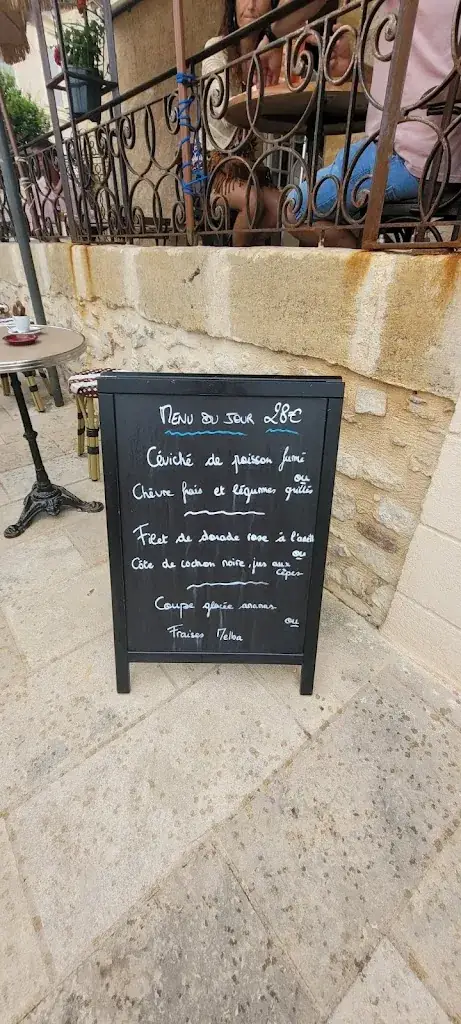 MENU DU JOUR 28€
Céviché de poisson fumé
ou
Chèvre frais et légumes grillés
Filet de dorade rose à l'aneth
ou
Côte de cochon noire, jus aux
cèpes
Coupe glacée ananas
ou
Fraises Melba